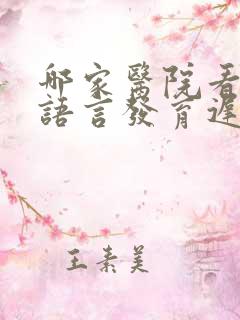 那家醫院看
語言發育遲
王素美